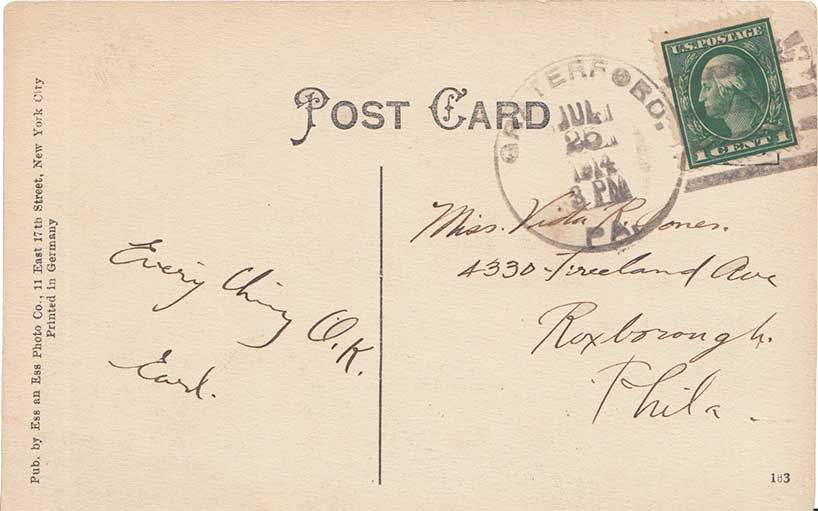 POST CARD
GRATERFORD.
JUL
25
1914
3 PM
PA.
U.S. POSTAGE
1 CENT 1
Pub. by Ess an Ess Photo Co., 11 East 17th Street, New York City
Printed in Germany
Every thing O.K.
Earl.
Miss. Vida R. Jones.
4330 Ave
Roxborough.
Phila.
183